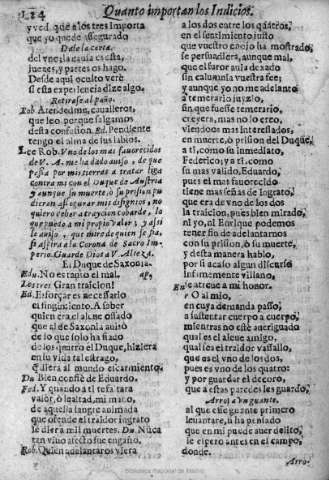 Quanto importan los Indicios.
y ved que a los tres importa
que yo quede assegurado
Dale la carta.
del vno, la causa es esta,
juezes, y partes os hago.
Desde aqui oculto verè
si esta experiencia dize algo.
Retirase al paño.
Rob. Atended me, cavalleros,
que leo, porque salgamos
desta confusion. Ed. Pendiente
tengo el alma de sus labios.
Lee Rob. Vno de los mas fauorecidos
de V. A. me ha dado auiso, de que
passa por mis tierras a tratar liga
contra mi con el Duque de Austria,
y aunque su muerte, ò su prision pu
dieran assegurar mis disignios, no
quiero deber a traycion cobarde, lo
que puedo a mi propio valor, y assi
le auiso, que mire de quien se fia,
si aspira a la Corona de Sacro Im-
perio. Guarde Dios a V. Alteza.
El Duque de Saxonia.
Edu. No es tapio el mal. ap.
Los tres Gran traicion!
Ed. Esforçar es necessario
el fingimiento. A saber
quien era el aleue ossado
que al de Saxonia auisò
de lo que solo ha fiado
de los quatro el Duque, hiziera
en su vida tal estrago,
que siera al mundo escarmiento.
Du Bien confiè de Eduardo.
Fed. Y quando a èl le falta
valor, ò lealtad, mi mano,
de aquella sangre animada
que ofende el traidor ingrato
le diera mil muertes. Du. Nũca
tan viuo afecto fue engaño.
Rob. Quien adelantaros viera
a los dos entre los quatros,
en el sentimiento justo
que vuestro enojo ha mostrado,
se persuadiera, aunque mal,
que el furor aula de zado
sin calumnia vuestra fee;
y aunque yo no me adelanto
a temerario juyzio,
sin que fuesse temerario,
creyera, mas no lo creo,
viendoos mas interessados,
en muerte, ò prision del Duque,
a ti, como su inmediato,
Federico; y a ti, como
su mas valido, Eduardo,
pues el mas fauorecido
tiene mas señas de ingrato,
que era de vno de los dos
la traicion, pues bien mirado,
ni yo, ni Enrique podemos
tener fin de adelantarnos
con su prision, ò su muerte,
y desta manera hablo,
por si acaso algun discurso
infimemente villano,
se atreue a mi honor.
Enr. O al mio,
en cuya demanda passo,
a sustentar cuerpo a cuerpo,
mientras no estè aueriguado
qual es el aleue amigo,
qual sea el traidor vassallo,
que es el vno de los dos,
pues es vno de los quatro:
y por guardar el decoro,
que a estas paredes les guardo,
Arroja vn guante.
al que esse guante primero
leuantare, ù ha pensado
que en mi puede auer delito,
le espero antes en el campo,
donde.
Arro-
Biblioteca Nacional de Madrid